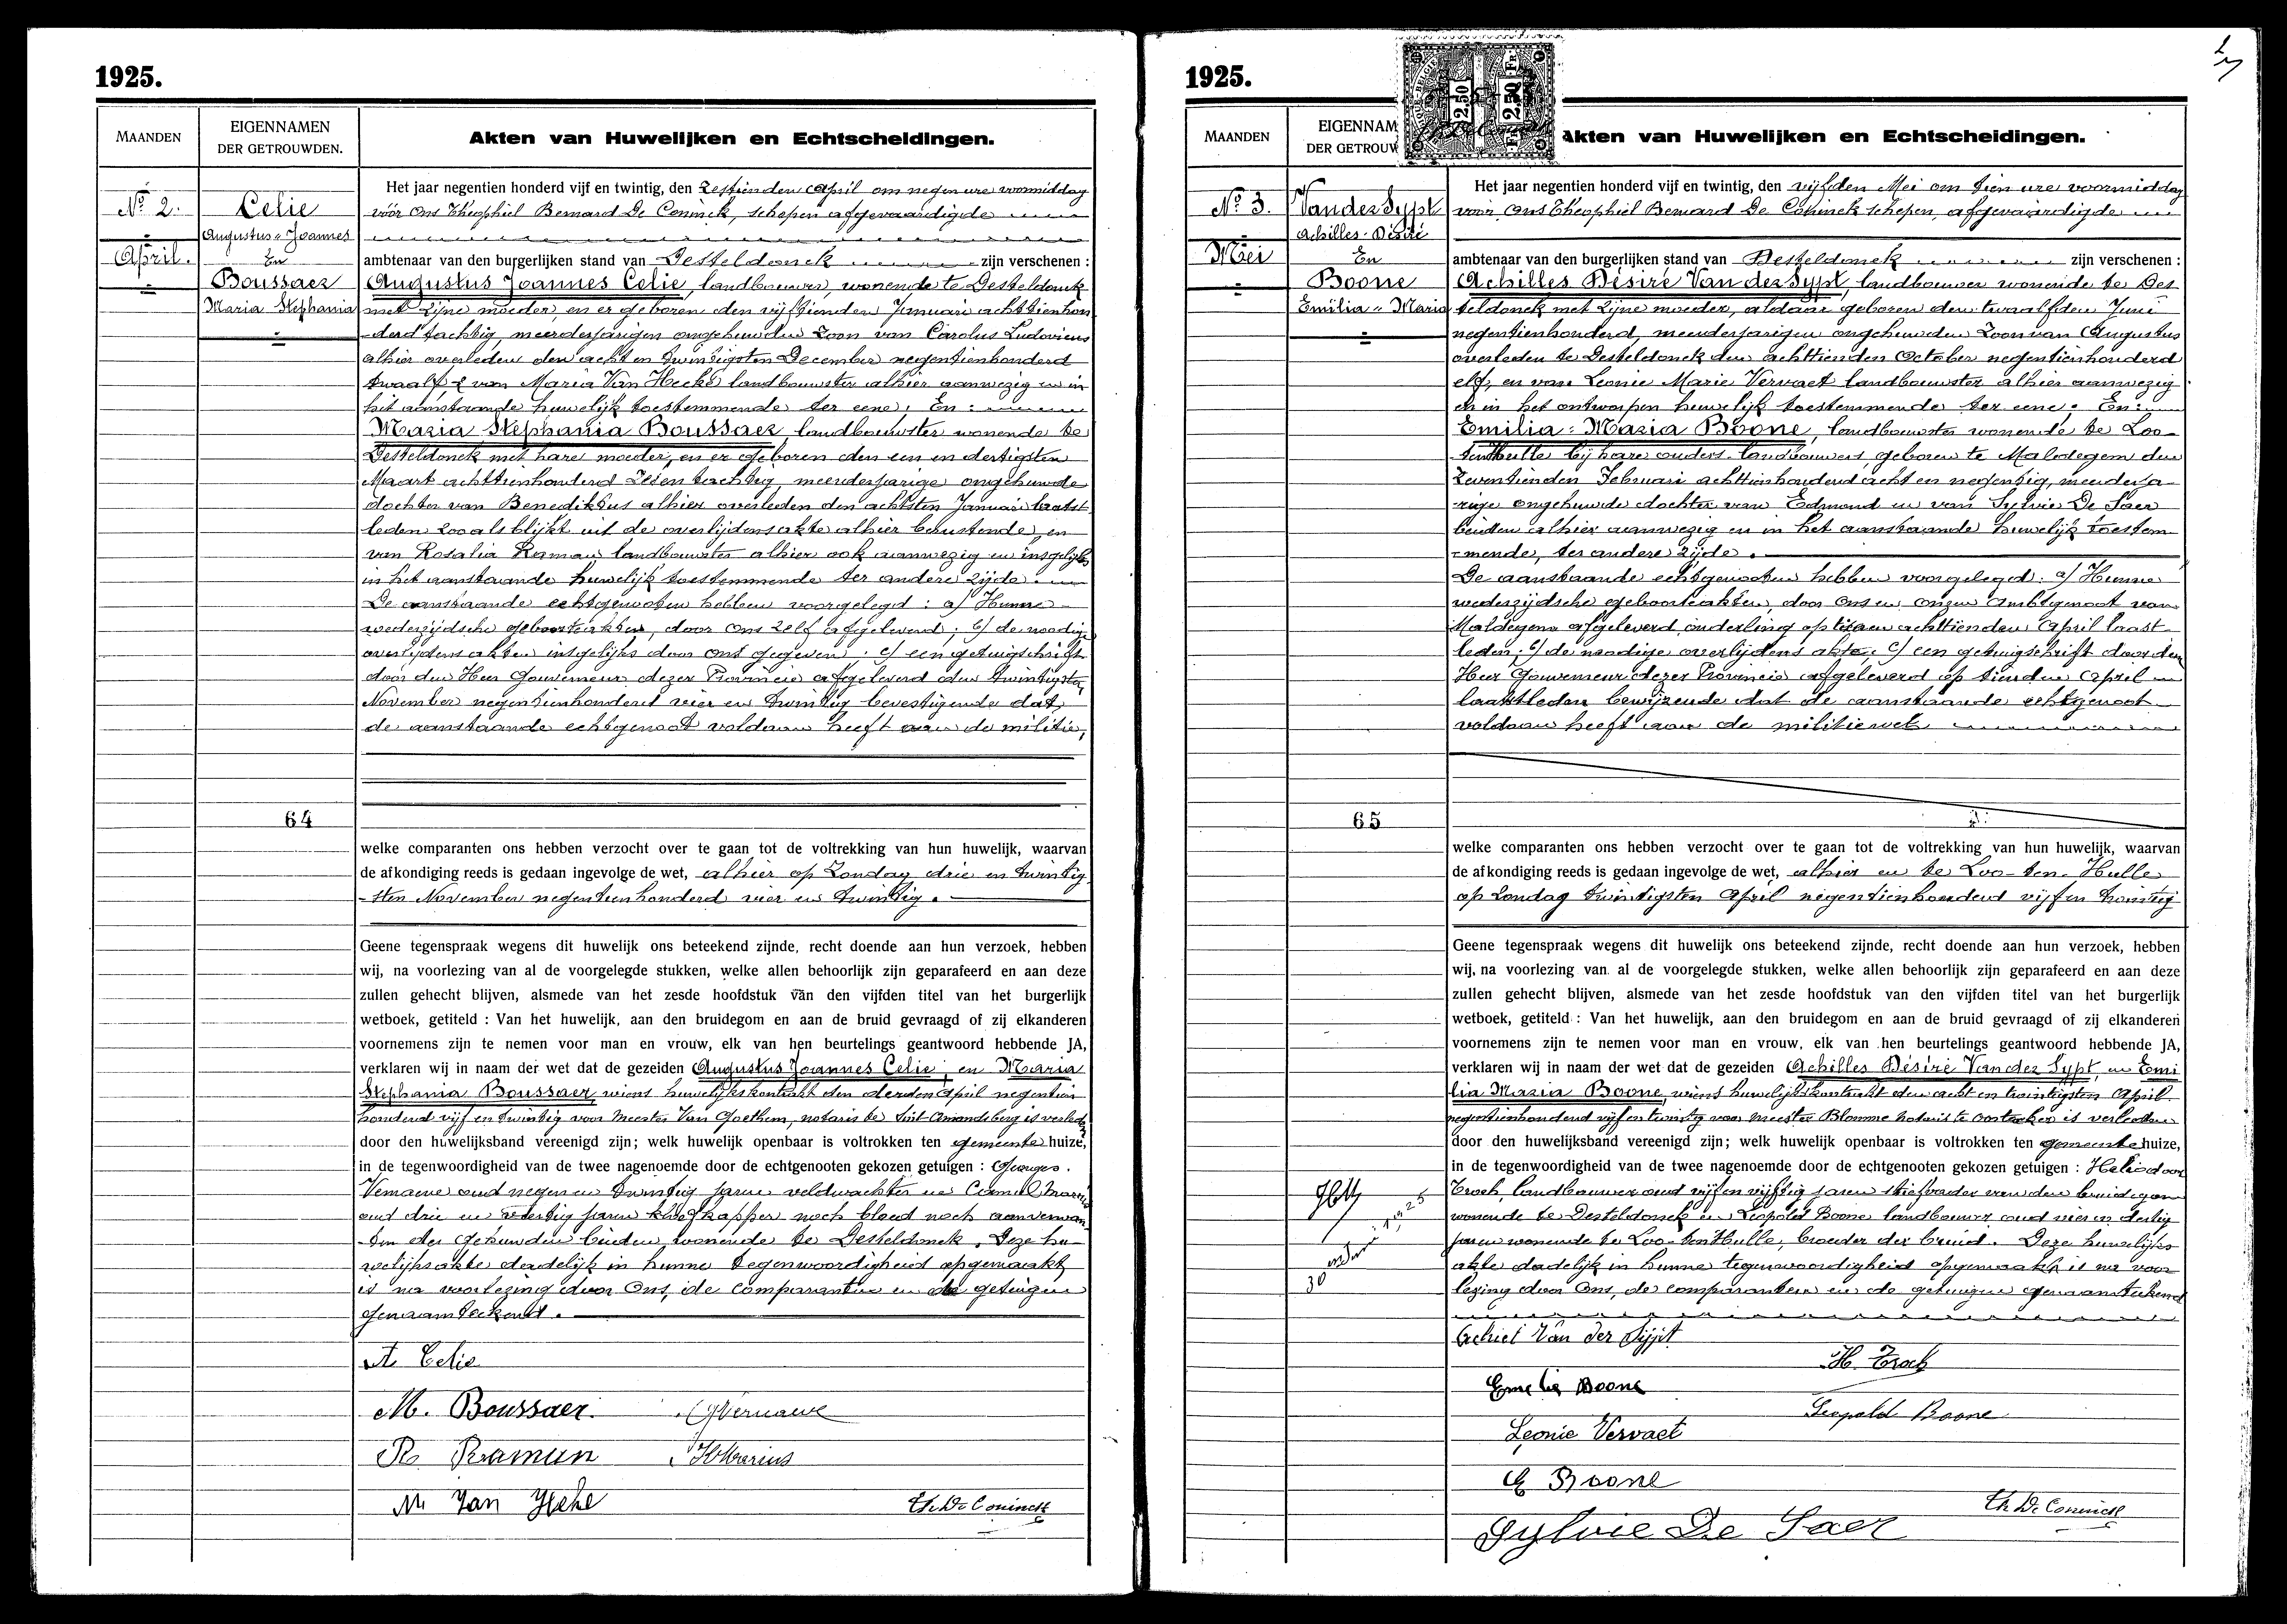 1925.
MAANDEN
EIGENNAMEN
DER GETROUWDEN.
Akten van Huwelijken en Echtscheidingen.
No 2.
April.
Celie
Augustus Joannes
En
Boussaer
Maria Stephania
64
Het jaar negentien honderd vijf en twintig, den zestienden April om negen ure voormiddag
vóór ons Theophiel Bernard De Coninck, schepen afgevaardigde
ambtenaar van den burgerlijken stand van Desteldonck zijn verschenen :
Augustus Joannes Celie, landbouwer, wonende te Desteldonck
met zijne moeder, en er geboren den vijftienden Januari achttienhon
-derd tachtig, meerderjarigen ongehuwden zoon van Carolus Ludovicus
alhier overleden den acht en twintigsten December negentienhonderd
twaalf & van Maria Van Hecke landbouwster alhier aanwezig en in
het aanstaande huwelijk toestemmende ter eene; En :
Maria Stephania Boussaer, landbouwster wonende te
Desteldonck met hare moeder, en er geboren den een en dertigsten
Maart achttienhonderd zeven tachtig, meerderjarige ongehuwde
dochter van Benediktus alhier overleden den achtsten Januari laatst
leden zooals blijkt uit de overlijdensakte alhier berustende, en
van Rosalia Raman landbouwster alhier ook aanwezig en insgelijks
in het aanstaande huwelijk toestemmende ter andere zijde.
De aanstaande echtgenooten hebben voorgelegd : a/ Hunne
wederzijdsche geboorteakten, door ons zelf afgeleverd; b/ de noodige
overlijdens akten insgelijks door ons gegeven; c/ een getuigschrift
door den Heer Gouverneur dezer Provincie afgeleverd den twintigsten
November negentienhonderd vier en twintig bevestigende dat
de aanstaande echtgenoot voldaan heeft aan de militie,
welke comparanten ons hebben verzocht over te gaan tot de voltrekking van hun huwelijk, waarvan
de afkondiging reeds is gedaan ingevolge de wet, alhier op Zondag drie en twintig
-sten November negentienhonderd vier en twintig.
Geene tegenspraak wegens dit huwelijk ons beteekend zijnde, recht doende aan hun verzoek, hebben
wij, na voorlezing van al de voorgelegde stukken, welke allen behoorlijk zijn geparafeerd en aan deze
zullen gehecht blijven, alsmede van het zesde hoofdstuk van den vijfden titel van het burgerlijk
wetboek, getiteld : Van het huwelijk, aan den bruidegom en aan de bruid gevraagd of zij elkanderen
voornemens zijn te nemen voor man en vrouw, elk van hen beurtelings geantwoord hebbende JA,
verklaren wij in naam der wet dat de gezeiden Augustus Joannes Celie, en Maria
Stephania Boussaer, wiens huwelijkskontrakt den derden April negentien
honderd vijf en twintig voor Meester Van Goethem, notaris te Sint-Amandsberg is verleden
door den huwelijksband vereenigd zijn; welk huwelijk openbaar is voltrokken ten gemeente huize,
in de tegenwoordigheid van de twee nagenoemde door de echtgenooten gekozen getuigen : Georges
Vernaeve oud negen en twintig jaren veldwachter en Camiel Marius
oud drie en jaren noch bloed noch aanverwan
-ten der gehuwden beiden wonende te Desteldonck. Deze hu-
welijksakte dadelijk in hunne tegenwoordigheid opgemaakt
is na voorlezing door Ons, de comparanten en de getuigen
genaamteekend.
A. Celie
M. Boussaer
G Vernaeve
R. Raman
Marius
M Van Heke
Th. De Coninck
1925.
MAANDEN
EIGENNAM
DER GETROUW
2.50
FR 2.50 FR
Akten van Huwelijken en Echtscheidingen.
No 3.
Mei
Van der Sypt
Achilles-Désiré
En
Boone
Emilia-Maria
65
Het jaar negentien honderd vijf en twintig, den vijfden Mei om tien ure voormiddag
voor, ons Theophiel Bernard De Coninck schepen, afgevaardigde
ambtenaar van den burgerlijken stand van Desteldonck zijn verschenen :
Achilles Désiré Van der Sypt, landbouwer wonende te Des
teldonck met zijne moeder, aldaar geboren den twaalfden Juni
negentienhonderd, meerderjarigen ongehuwden zoon van Augustus
overleden te Desteldonck den achttienden October negentienhonderd
elf, en van Leonie Marie Vervaet landbouwster alhier aanwezig
en in het ontworpen huwelijk toestemmende ter eene; En :
Emilia-Maria Boone, landbouwster wonende te Loo-
tenHulle bij hare ouders landbouwers, geboren te Maldegem den
zeventienden Februari achttienhonderd acht en negentig, meerderja-
rige ongehuwde dochter van Edmond en van Sylvie De Saer
beiden alhier aanwezig en in het aanstaande huwelijk toestem-
-mende, ter andere zijde.
De aanstaande echtgenooten hebben voorgelegd : a/ Hunne
wederzijdsche geboorteakten, door ons en onzen ambtgenoot van
Maldegem afgeleverd onderling op tien en achttienden April laast
leden; b/ de noodige overlijdens akte; c/ een getuigschrift door den
Heer Gouverneur dezer Provincie afgeleverd op tienden April
laatstleden bewijzende dat de aanstaande echtgenoot
voldaan heeft aan de militiewet
welke comparanten ons hebben verzocht over te gaan tot de voltrekking van hun huwelijk, waarvan
de afkondiging reeds is gedaan ingevolge de wet, alhier en te Loo-ten-Hulle
op Zondag twintigsten April negentienhonderd vijf en twintig
Geene tegenspraak wegens dit huwelijk ons beteekend zijnde, recht doende aan hun verzoek, hebben
wij, na voorlezing van al de voorgelegde stukken, welke allen behoorlijk zijn geparafeerd en aan deze
zullen gehecht blijven, alsmede van het zesde hoofdstuk van den vijfden titel van het burgerlijk
wetboek, getiteld : Van het huwelijk, aan den bruidegom en aan de bruid gevraagd of zij elkanderen
voornemens zijn te nemen voor man en vrouw, elk van hen beurtelings geantwoord hebbende JA,
verklaren wij in naam der wet dat de gezeiden Achilles Désiré Van der Sypt, en Emi
lia Maria Boone, wiens huwelijkskontrakt den acht en twintigsten April
negentienhonderd vijf en twintig voor Meester Blomme notaris te Oostacker is verleden
door den huwelijksband vereenigd zijn; welk huwelijk openbaar is voltrokken ten gemeente huize,
in de tegenwoordigheid van de twee nagenoemde door de echtgenooten gekozen getuigen : Heliodoor
Troch, landbouwer oud vijf en vijftig jaren stiefvader van den bruidegom
wonende te Desteldonck en Leopold Boone landbouwer oud vier en dertig
jaren wonende te Loo-tenHulle, broeder der bruid. Deze huwelijks
akte dadelijk in hunne tegenwoordigheid opgemaakt is na voor
lezing door Ons, de comparanten en de getuigen genaamteekend
30
Achiel Van der Sijpt
H. Troch
Emelie Boone
Leopold Boone
Leonie Vervaet
E Boone
Th De Coninck
Sylvie De Saer